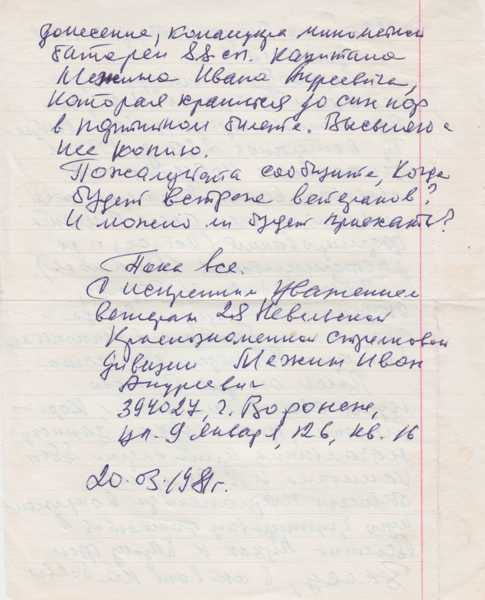 донесение, командира миномётной
батареи 88 сп. капитана
Межина Ивана Андреевича,
которая хранится до сих пор
в партийном билете. Высылаю с
нее копию.
Пожалуйста сообщите, когда
будет встреча ветеранов?
И можно ли будет приехать?
Пока все.
С искренним уважением
ветеран 28 Невельской
Краснознаменной стрелковой
дивизии Межин Иван
Андреевич
394027, г. Воронеж,
ул. 9 января, 126, кв. 16
20.03.1981г.